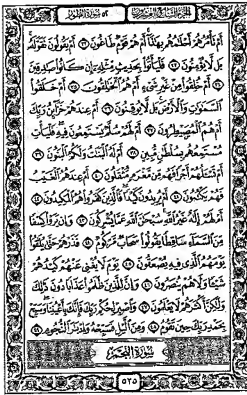 الجزء السابع والعشرون ٥٢ سورة الطور
أَمْ تَأْمُرُهُمْ أَحْلَٰمُهُم بِهَٰذَآ أَمْ هُمْ قَوْمٌ طَاغُونَ ٣٢ أَمْ يَقُولُونَ تَقَوَّلَهُۥ
بَل لَّا يُؤْمِنُونَ ٣٣ فَلْيَأْتُوا۟ بِحَدِيثٍ مِّثْلِهِۦٓ إِن كَانُوا۟ صَٰدِقِينَ
٣٤ أَمْ خُلِقُوا۟ مِنْ غَيْرِ شَىْءٍ أَمْ هُمُ ٱلْخَٰلِقُونَ ٣٥ أَمْ خَلَقُوا۟
ٱلسَّمَٰوَٰتِ وَٱلْأَرْضَ بَل لَّا يُوقِنُونَ ٣٦ أَمْ عِندَهُمْ خَزَآئِنُ رَبِّكَ
أَمْ هُمُ ٱلْمُصَۣيْطِرُونَ ٣٧ أَمْ لَهُمْ سُلَّمٌ يَسْتَمِعُونَ فِيهِ فَلْيَأْتِ
مُسْتَمِعُهُم بِسُلْطَٰنٍ مُّبِينٍ ٣٨ أَمْ لَهُ ٱلْبَنَٰتُ وَلَكُمُ ٱلْبَنُونَ ٣٩
أَمْ تَسْـَٔلُهُمْ أَجْرًا فَهُم مِّن مَّغْرَمٍ مُّثْقَلُونَ ٤٠ أَمْ عِندَهُمُ ٱلْغَيْبُ
فَهُمْ يَكْتُبُونَ ٤١ أَمْ يُرِيدُونَ كَيْدًا فَٱلَّذِينَ كَفَرُوا۟ هُمُ ٱلْمَكِيدُونَ ٤٢
أَمْ لَهُمْ إِلَٰهٌ غَيْرُ ٱللَّهِ سُبْحَٰنَ ٱللَّهِ عَمَّا يُشْرِكُونَ ٤٣ وَإِن يَرَوْا۟ كِسْفًا
مِّنَ ٱلسَّمَآءِ سَاقِطًا يَقُولُوا۟ سَحَابٌ مَّرْكُومٌ ٤٤ فَذَرْهُمْ حَتَّىٰ يُلَٰقُوا۟
يَوْمَهُمُ ٱلَّذِى فِيهِ يُصْعَقُونَ ٤٥ يَوْمَ لَا يُغْنِى عَنْهُمْ كَيْدُهُمْ
شَيْـًٔا وَلَا هُمْ يُنصَرُونَ ٤٦ وَإِنَّ لِلَّذِينَ ظَلَمُوا۟ عَذَابًا دُونَ ذَٰلِكَ
وَلَٰكِنَّ أَكْثَرَهُمْ لَا يَعْلَمُونَ ٤٧ وَٱصْبِرْ لِحُكْمِ رَبِّكَ فَإِنَّكَ بِأَعْيُنِنَا وَسَبِّحْ
بِحَمْدِ رَبِّكَ حِينَ تَقُومُ ٤٨ وَمِنَ ٱلَّيْلِ فَسَبِّحْهُ وَإِدْبَٰرَ ٱلنُّجُومِ ٤٩
سورة النجم
٥٢٥